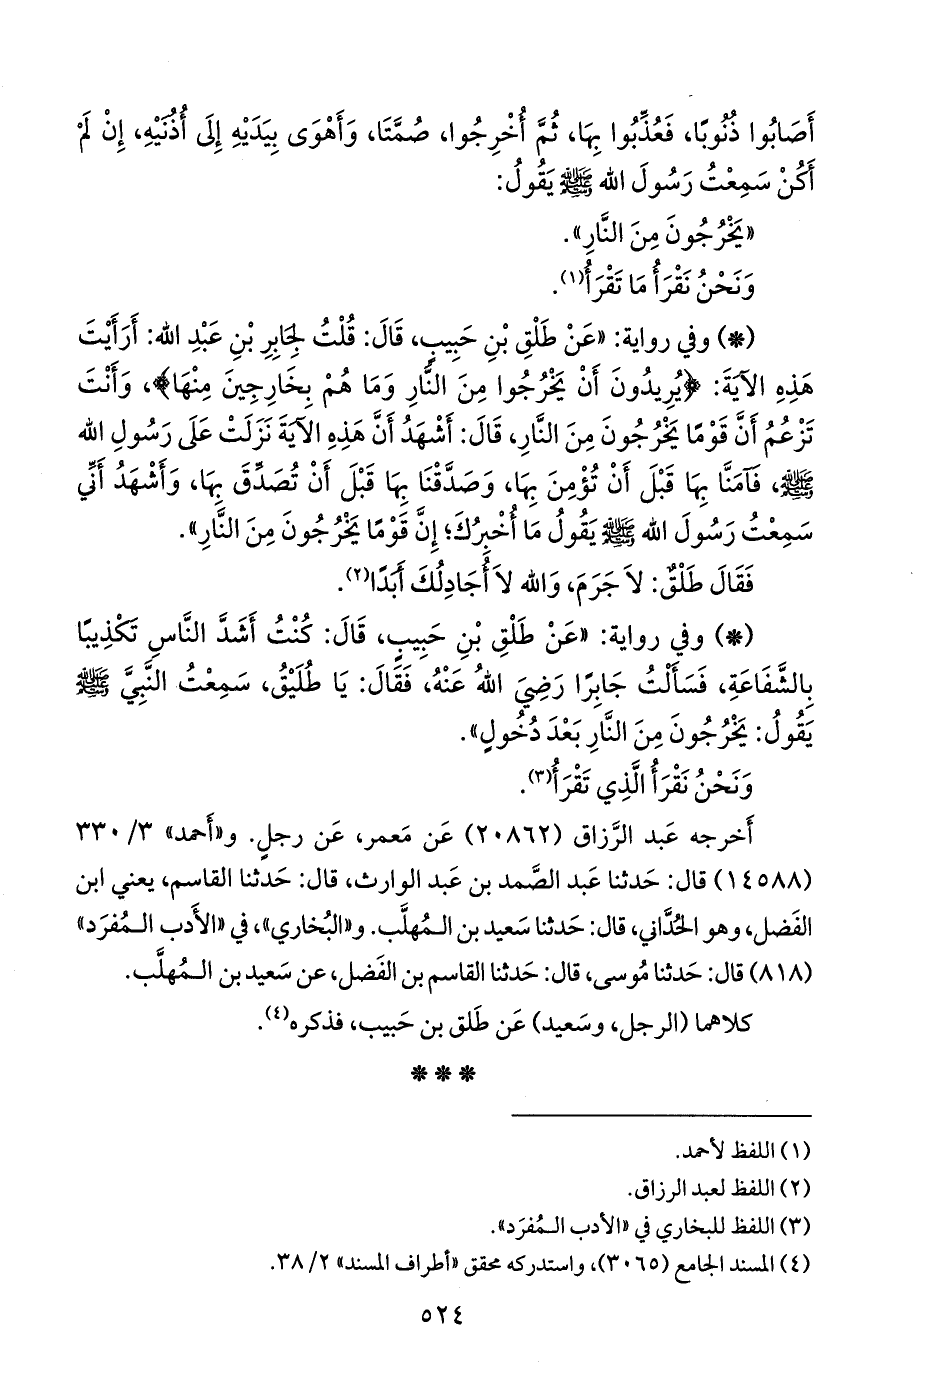 أَصَابُوا ذُنُوبًا، فَعُذِّبُوا بِهَا، ثُمَّ أُخْرِجُوا، صُمَّتَا، وَأَهْوَى بِيَدَيْهِ إِلَى أُذُنَيْهِ، إِنْ لَمْ
أَكُنْ سَمِعْتُ رَسُولَ الله ﷺ يَقُولُ:
«يَخْرُجُونَ مِنَ النَّارِ».
وَنَحْنُ نَقْرَأُ مَا تَقْرَأُ(١).
(*) وفي رواية: «عَنْ طَلْقِ بْنِ حَبِيبٍ، قَالَ: قُلْتُ لِجَابِرِ بْنِ عَبْدِ الله: أَرَأَيْتَ
هَذِهِ الآيَةَ: ﴿يُرِيدُونَ أَنْ يَخْرُجُوا مِنَ النَّارِ وَمَا هُمْ بِخَارِجِينَ مِنْهَا﴾، وَأَنْتَ
تَزْعُمُ أَنَّ قَوْمًا يَخْرُجُونَ مِنَ النَّارِ، قَالَ: أَشْهَدُ أَنَّ هَذِهِ الآيَةَ نَزَلَتْ عَلَى رَسُولِ الله
ﷺ، فَآمَنَّا بِهَا قَبْلَ أَنْ تُؤْمِنَ بِهَا، وَصَدَّقْنَا بِهَا قَبْلَ أَنْ تُصَدِّقَ بِهَا، وَأَشْهَدُ أَنِّي
سَمِعْتُ رَسُولَ الله ﷺ يَقُولُ مَا أُخْبِرُكَ؛ إِنَّ قَوْمًا يَخْرُجُونَ مِنَ النَّارِ».
فَقَالَ طَلْقٌ: لاَ جَرَمَ، وَالله لاَ أُجَادِلُكَ أَبَدًا(٢).
(*) وفي رواية: «عَنْ طَلْقِ بْنِ حَبِيبٍ، قَالَ: كُنْتُ أَشَدَّ النَّاسِ تَكْذِيبًا
بِالشَّفَاعَةِ، فَسَأَلْتُ جَابِرًا رَضِيَ اللهُ عَنْهُ، فَقَالَ: يَا طُلَيْقُ، سَمِعْتُ النَّبِيَّ ﷺ
يَقُولُ: يَخْرُجُونَ مِنَ النَّارِ بَعْدَ دُخُولٍ».
وَنَحْنُ نَقْرَأُ الَّذِي تَقْرَأُ(٣).
أَخرجه عَبد الرَّزاق (٢٠٨٦٢) عَن مَعمر، عَن رجلٍ. و«أَحمد» ٣/ ٣٣٠
(١٤٥٨٨) قال: حَدثنا عَبد الصَّمد بن عَبد الوارث، قال: حَدثنا القاسم، يعني ابن
الفَضل، وهو الحُدَّاني، قال: حَدثنا سَعيد بن الـمُهلَّب. و«البُخاري»، في «الأَدب الـمُفرَد»
(٨١٨) قال: حَدثنا مُوسى، قال: حَدثنا القاسم بن الفَضل، عن سَعيد بن الـمُهلَّب.
كلاهما (الرجل، وسَعيد) عَن طَلق بن حَبيب، فذكره(٤).
* * *
(١) اللفظ لأحمد.
(٢) اللفظ لعبد الرزاق.
(٣) اللفظ للبخاري في «الأدب الـمُفرَد».
(٤) المسند الجامع (٣٠٦٥)، واستدركه محقق «أطراف المسند» ٢/ ٣٨.
٥٢٤